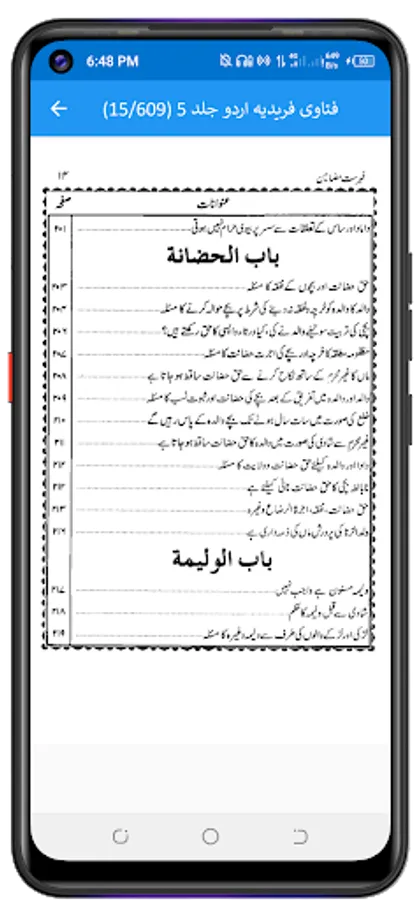 6:48 PM
فتاوی فریدیہ اردو جلد 5 (15/609)
فہرست مضامین ۱۳
عنوانات صفحہ
داماد اور ساس کے تعلقات سے سسر پر بیوی حرام نہیں ہوتی ۲۰۱
باب الحضانة
حق حضانت اور بچوں کے نفقہ کا مسئلہ ۲۰۳
والد کا والدہ کو خرچہ و نفقہ نہ دینے کی شرط پر بچے حوالہ کرنے کا مسئلہ ۲۰۴
بچی کی تربیت سونپنے والد نے کی، کیا ورثاء واپسی کا حق رکھتے ہیں؟ ۲۰۶
مظلومہ مطلقہ کا خرچہ اور بچے کی اجرت حضانت کا مسئلہ ۲۰۷
ماں کا غیر محرم کے ساتھ نکاح کرنے سے حق حضانت ساقط ہو جاتا ہے ۲۰۸
والد اور والدہ میں تفریق کے بعد بچے کی حضانت اور ثبوت نسب کا مسئلہ ۲۰۹
خلع کی صورت میں سات سال ہونے تک بچے والدہ کے پاس رہیں گے ۲۱۰
غیر محرم سے شادی کی صورت میں والدہ کا حق حضانت ساقط ہو جاتا ہے ۲۱۱
دادا اور والدہ کیلئے حق حضانت و ولایت کا مسئلہ ۲۱۲
نابالغہ بچی کا حق حضانت نانی کیلئے ہے
حق حضانت، نفقہ، اجرة الرضاع وغیرہ ۲۱۴
ولد الزنا کی پرورش ماں کی ذمہ داری ہے ۲۱۶
باب الوليمة
ولیمہ مسنون ہے واجب نہیں ۲۱۷
شادی سے قبل ولیمہ کا حکم ۲۱۸
لڑکی اور لڑکے والوں کی طرف سے ولیمہ وغیرہ کا مسئلہ ۲۱۹